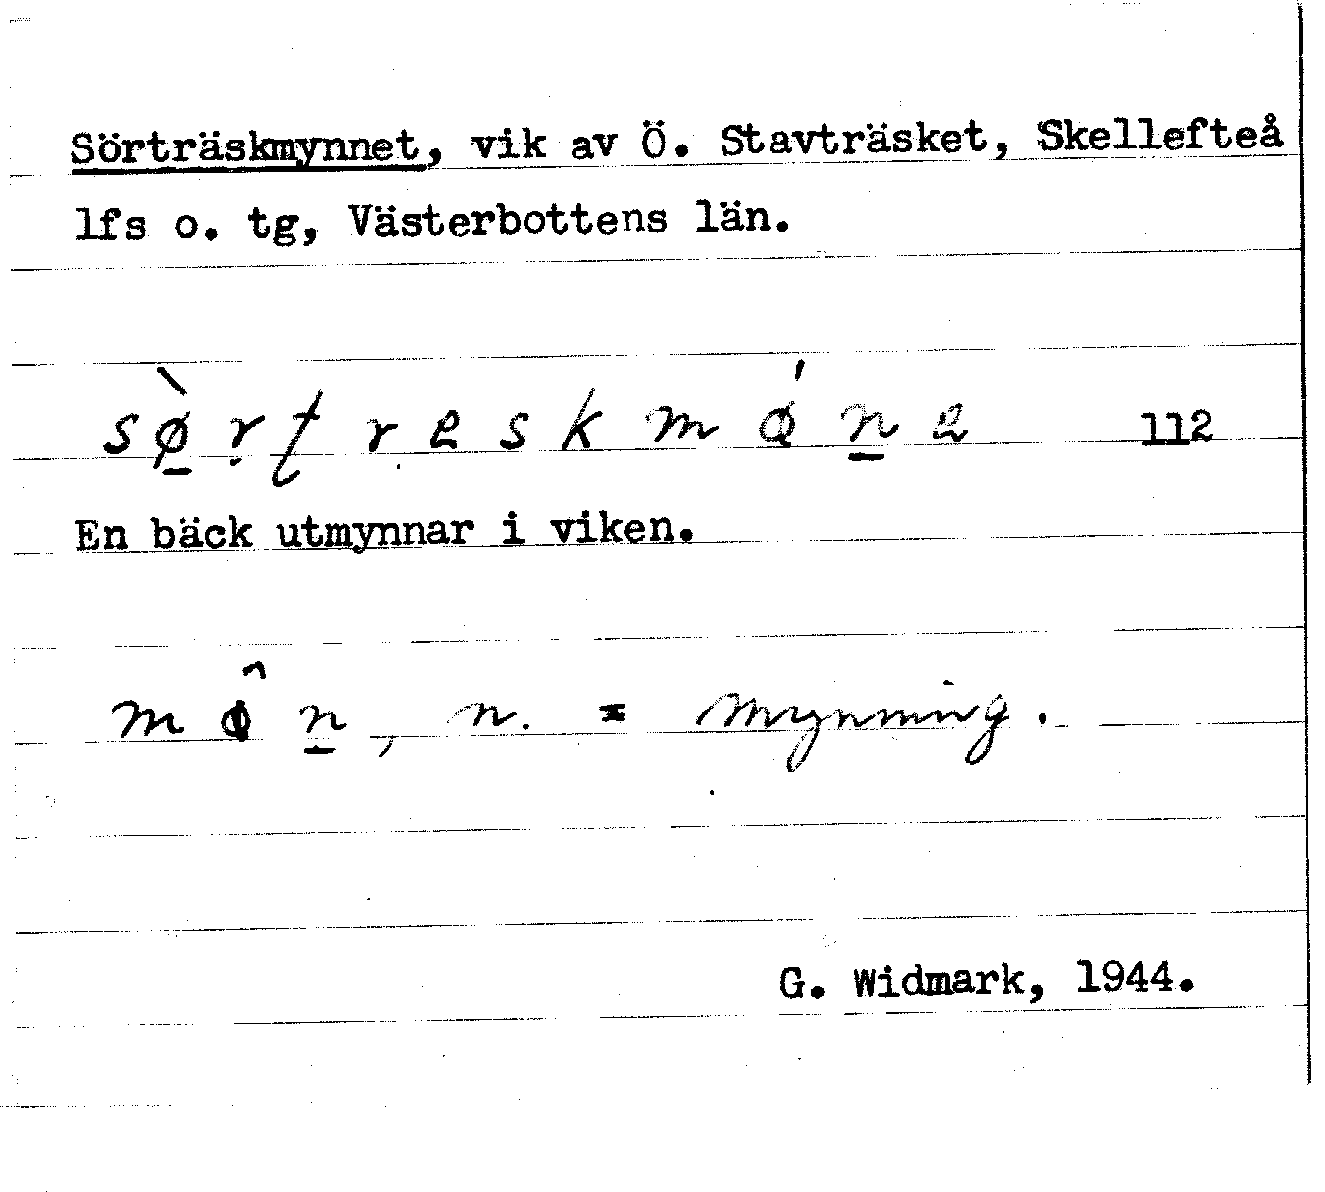 Sörträskmynnet, vik av Ö. Stavträsket, Skellefteå
lfs o. tg, Västerbottens län.
sø̱̀rʈreskmǿṉe 112
En bäck utmynnar i viken.
mø̂ṉ, n. = mynning.
G. Widmark, 1944.